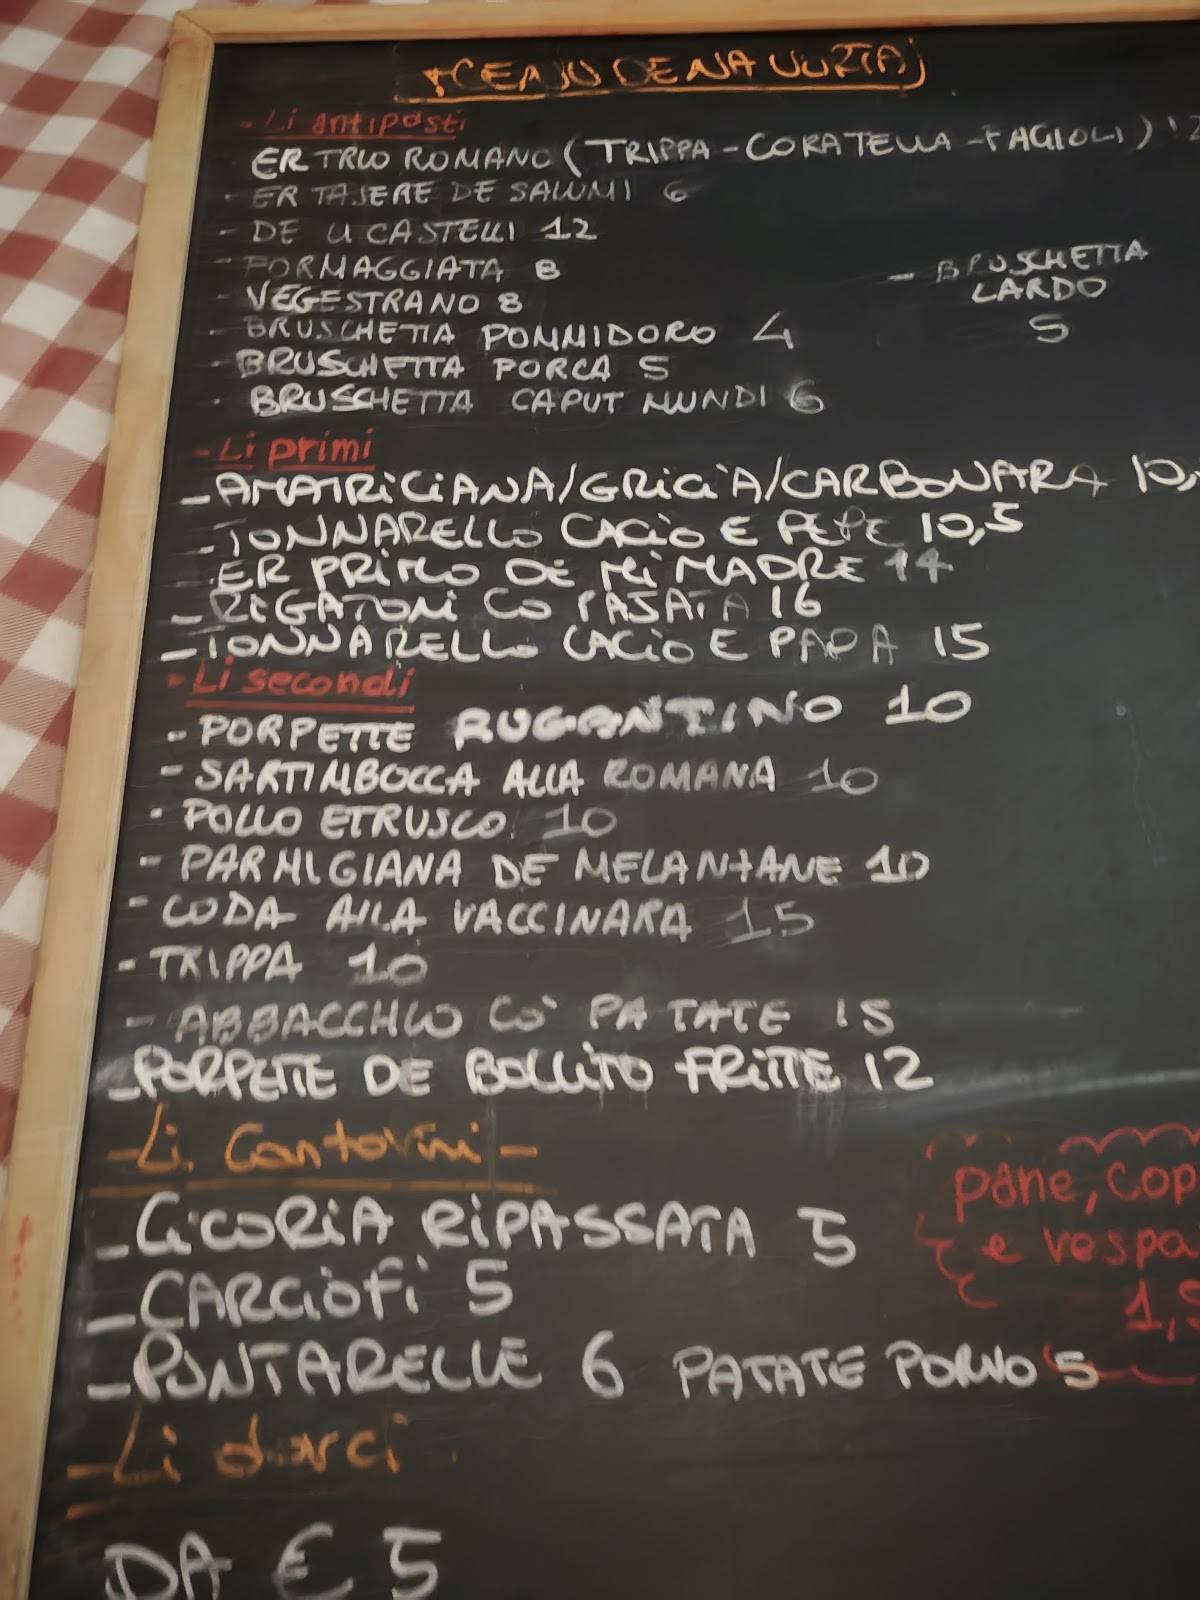 - Li antiposti
ER TRIO ROMANO (TRIPPA - CORATELLA - FAGIOLI)
- ER TAJERE DE SALUMI 6
- DE LI CASTELLI 12
- FORMAGGIATA 8
- VEGESTRANO 8
- BRUSCHETTA
LARDO
5
- BRUSCHETTA POMMIDORO 4
- BRUSCHETTA PORCA 5
- BRUSCHETTA CAPUT MUNDI 6
- Li primi
- AMATRICIANA/GRICIA/CARBONARA 10,
- TONNARELLO CACIO E PEPE 10,5
- ER PRIMO DE MI MADRE 14
- RIGATONI CO PAJATA 16
- TONNARELLO CACIO E PAPA 15
- Li secondi
- PORPETTE RUGANTINO 10
- SARTIMBOCCA ALLA ROMANA 10
- POLLO ETRUSCO 10
- PARMIGIANA DE MELANZANE 10
- CODA ALLA VACCINARA 15
- TRIPPA 10
- ABBACCHIO CO' PATATE 15
- PORPETTE DE BOLLITO FRITTE 12
- Li Contorni -
- CICORIA RIPASSATA 5
- CARCIOFI 5
- PUNTARELLE 6 PATATE PORNO 5
pane, cop
e vespa
1,5
- Li dorci
DA € 5